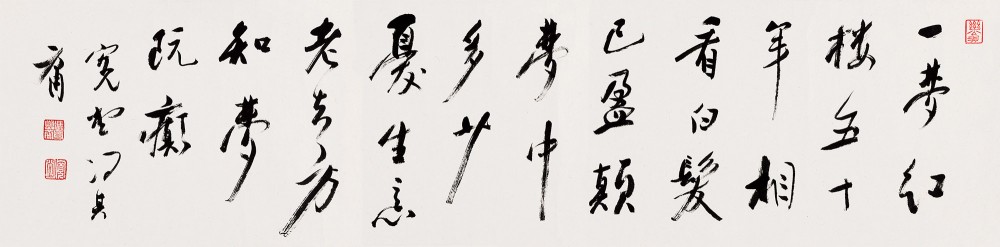 一夢红
楼五十
年相
看白髮
已盈顛
夢中
多少
憂生意
老去方
知夢
阮癲
宽堂冯其
庸